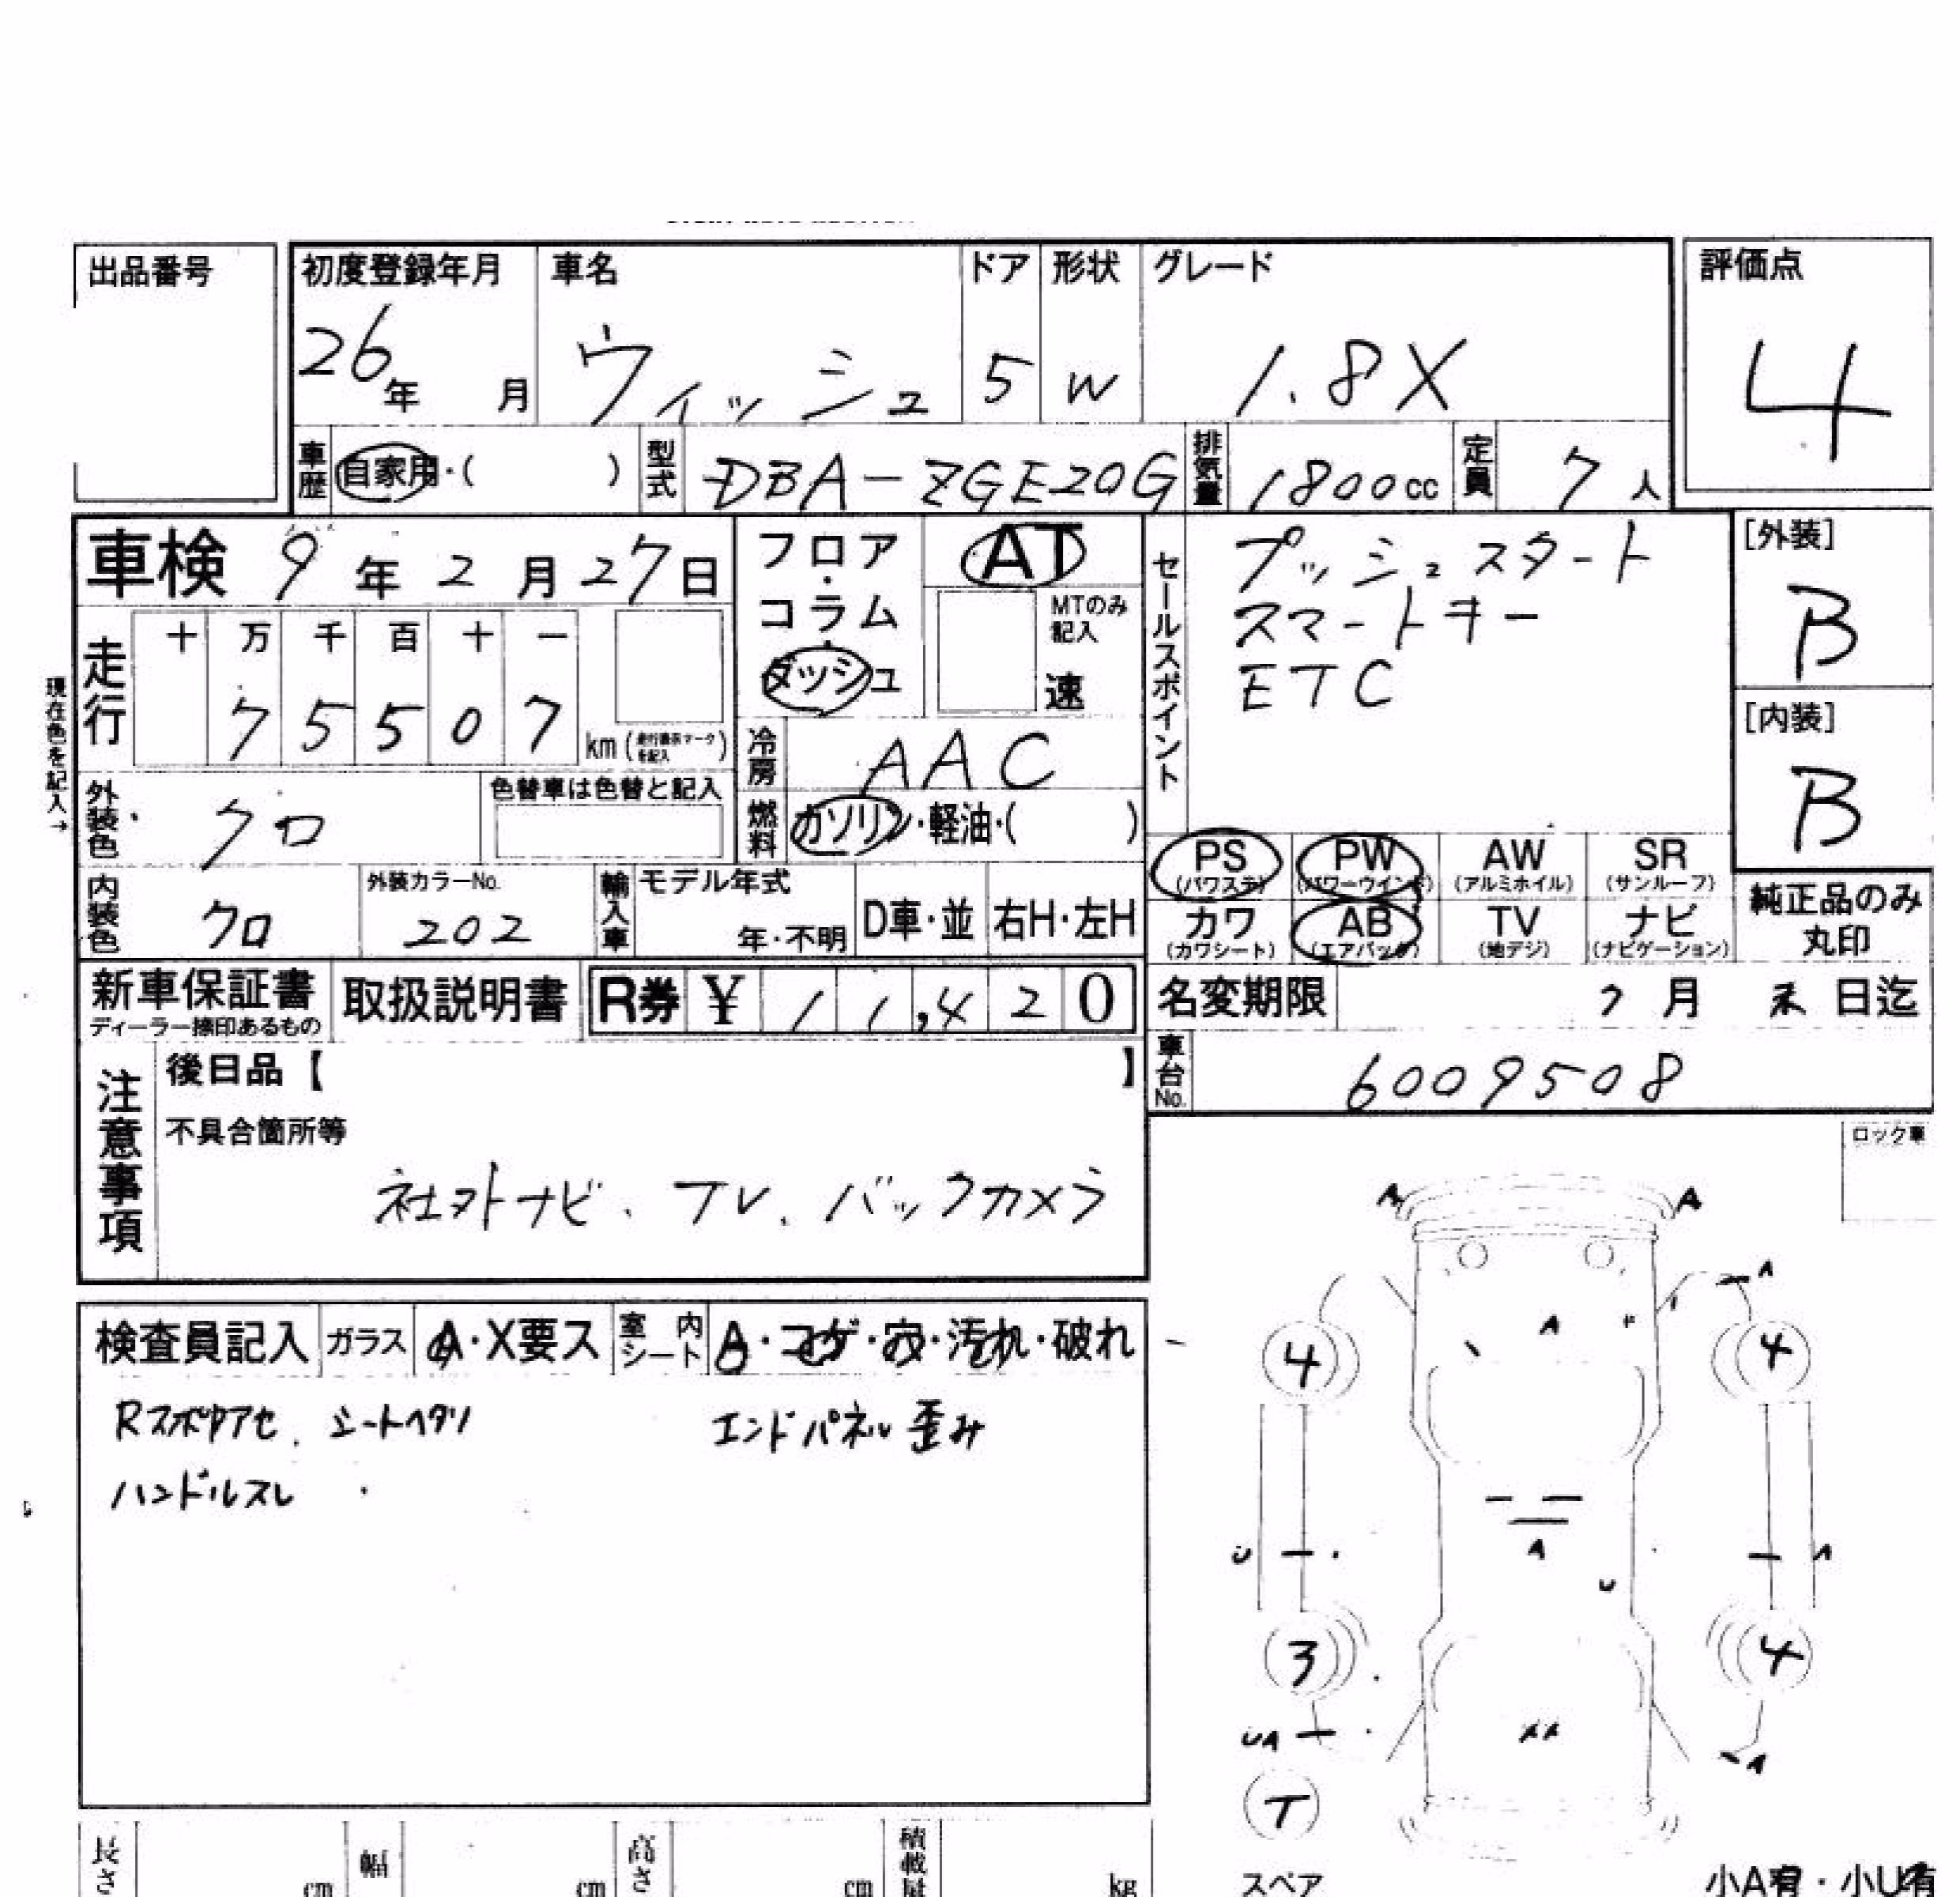 出品番号
初度登録年月 車名 ドア 形状 グレード 評価点
26年 月 ウィッシュ 5 W 1.8X 4
車歴 自家用・( ) 型式 DBA-ZGE20G 排気量 1800cc 定員 7人
車検 9年2月27日 フロア・コラム・ダッシュ AT
MTのみ記入 速
セールスポイント
プッシュスタート
スマートキー
ETC
[外装]
B
[内装]
B
現在色を記入→
走行 十 万 千 百 十 一
7 5 5 0 7 km(走行距離マークを記入)
冷房 AAC
外装色 クロ 色替車は色替と記入
燃料 ガソリン・軽油・( )
PS (パワステ) PW (パワーウインド) AW (アルミホイル) SR (サンルーフ)
カワ (カワシート) AB (エアバック) TV (地デジ) ナビ (ナビゲーション)
純正品のみ
丸印
内装色 クロ 外装カラーNo. 202 輸入車 モデル年式 年・不明 D車・並 右H・左H
新車保証書 取扱説明書 R券 ¥ 1 1,4 2 0 名変期限 月 末 日迄
ディーラー捺印あるもの
車台No. 6009508
注意事項
後日品【 】
不具合箇所等
社外ナビ、TV、バックカメラ
ロック車
検査員記入 ガラス A・X要ス 室内シート A・コゲ・穴・汚れ・破れ
Rスポアセ、シートヘタリ エンドパネル歪み
ハンドルスレ
A A
A
A
4 4
A
U A
U
3 4
UA
A
T
スペア
長さ cm 幅 cm 高さ cm 積載量 kg
小A有・小U有